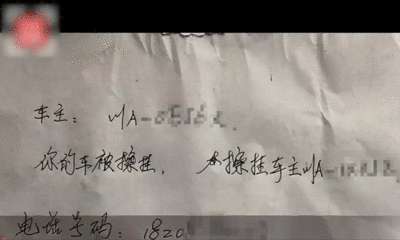 车主： 川A-
你的车被擦挂， 擦挂车主川A-
电话号码：1820